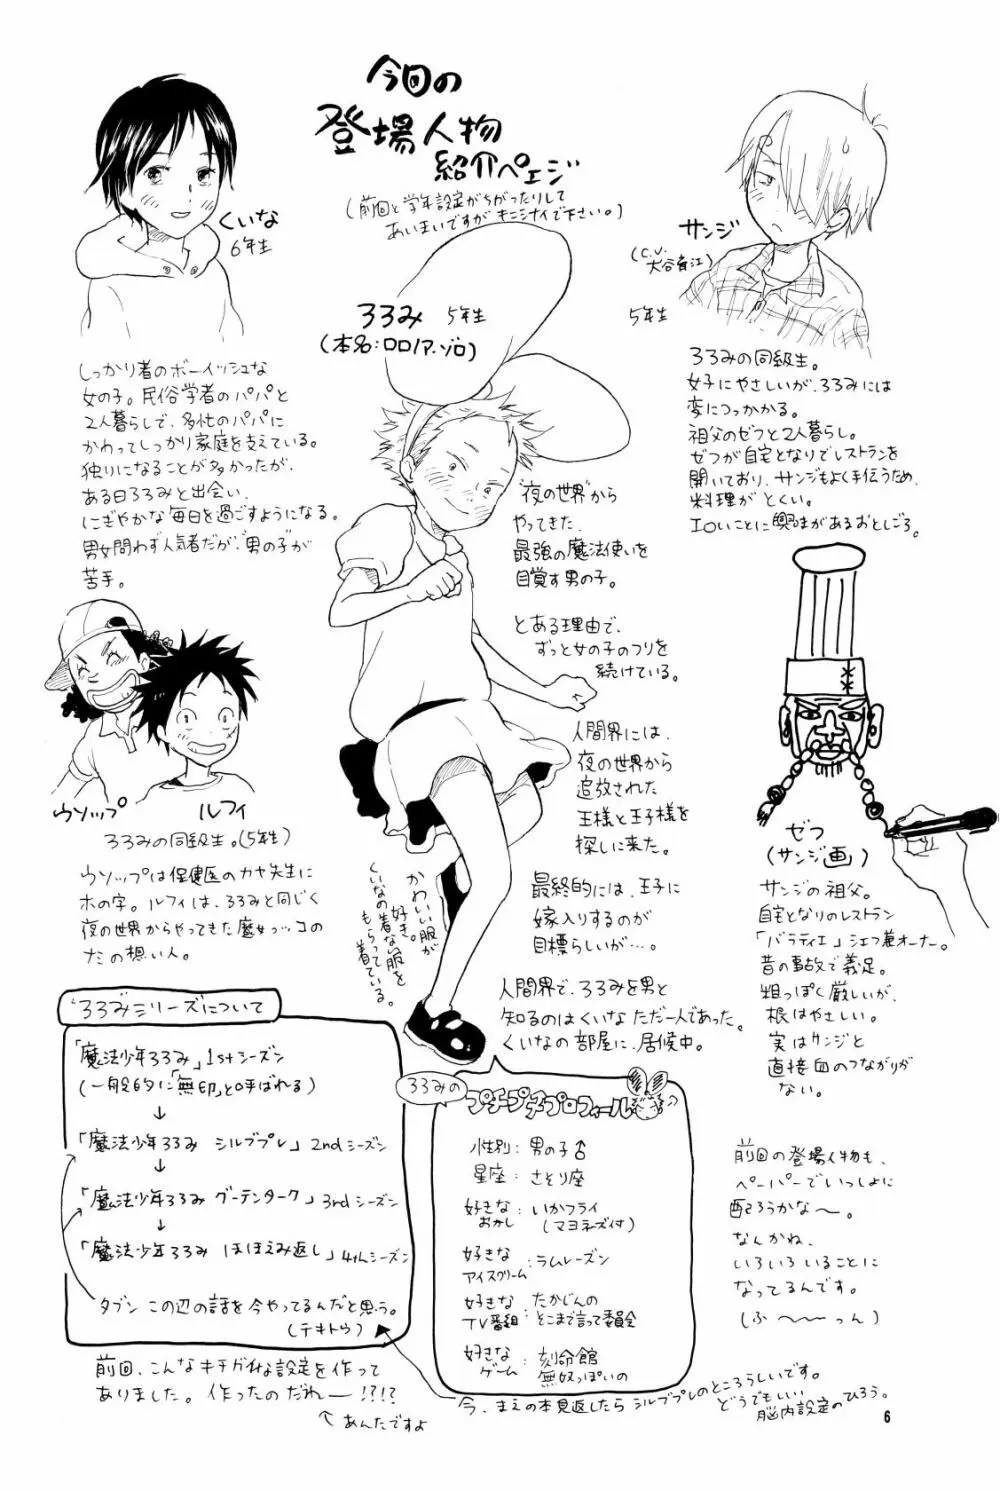 今回の
登場人物
紹介ペェジ
(前回と学年設定がちがったりして
あいまいですが キニシナイで下さい。)
くいな
6年生
しっかり者のボーイッシュな
女の子。民俗学者のパパと
2人暮らしで、多忙のパパに
かわってしっかり家庭を支えている。
独りになることが多かったが、
ある日ろろみと出会い、
にぎやかな毎日を過ごすようになる。
男女問わず人気者だが、"男の子"が
苦手。
サンジ
(C.V.
大谷育江)
5年生
ろろみの同級生。
女子にやさしいが、ろろみには
変につっかかる。
祖父のゼフと2人暮らし。
ゼフが自宅となりでレストランを
開いており、サンジもよく手伝うため、
料理がとくい。
エロいことに興味があるおとしごろ。
ろろみ 5年生
(本名:ロロノア・ゾロ)
"夜の世界"から
やってきた、
最強の魔法使いを
目覚す男の子。
とある理由で、
ずっと女の子のフリを
続けている。
人間界には、
夜の世界から
追放された
王様と王子様を
探しに来た。
最終的には、王子に
嫁入りするのが
目標らしいが…。
人間界で、ろろみを男と
知るのはくいな ただ一人であった。
くいなの部屋に、居候中。
かわいい服が
好き。
くいなの着ない服を
もらって着ている。
ウソップ
ルフィ
ろろみの同級生。(5年生)
ウソップは保健医のカヤ先生に
ホの字。ルフィは、ろろみと同じく
夜の世界からやってきた魔女っコの
ナミの想い人。
ゼフ
(サンジ画)
サンジの祖父。
自宅となりのレストラン
「バラティエ」シェフ兼オーナー。
昔の事故で義足。
粗っぽく厳しいが、
根はやさしい。
実はサンジと
直接血のつながりが
ない。
ろろみシリーズについて
「魔法少年ろろみ」1stシーズン
(一般的に「無印」と呼ばれる)
↓
「魔法少年ろろみ シルブプレ」2ndシーズン
↓
「魔法少年ろろみ グーテンターク」3rdシーズン
↓
「魔法少年ろろみ ほほえみ返し」4thシーズン
タブン この辺の話を今やってるんだと思う。
(テキトウ)
前回、こんなキチガイな設定を作って
ありました。作ったのだれー!?!?
↖あんたですよ
ろろみの
プチプチプロフィール♪
性別:男の子♂
星座:さとり座
好きなおかし:いかフライ
(マヨネーズ付)
好きなアイスクリーム:ラムレーズン
好きなTV番組:たかじんの
そこまで言って委員会
好きなゲーム:刻命館
無奴っぽいの
今、まえの本見返したら シルブプレのところらしいです。
どうでもいい
脳内設定のひろう。
前回の登場人物も、
ペーパーでいっしょに
配ろうかな〜。
なんかね、
いろいろいることに
なってるんです。
(ふ〜〜っん)
6